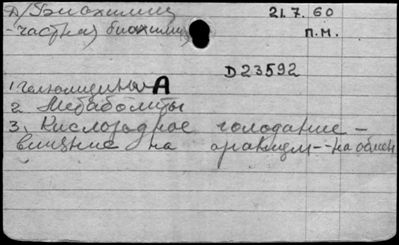 д/Биохимии 21.7.60
-частная биохимия П.М.
D23592
1 А
2. Метаболиты
3. Кислородное голодание -
влияние на организм -- на обмен